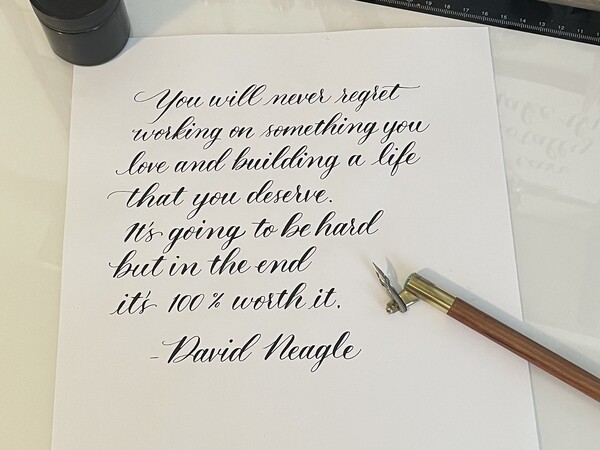 You will never regret
working on something you
love and building a life
that you deserve.
It's going to be hard
but in the end
it's 100% worth it.
- David Neagle